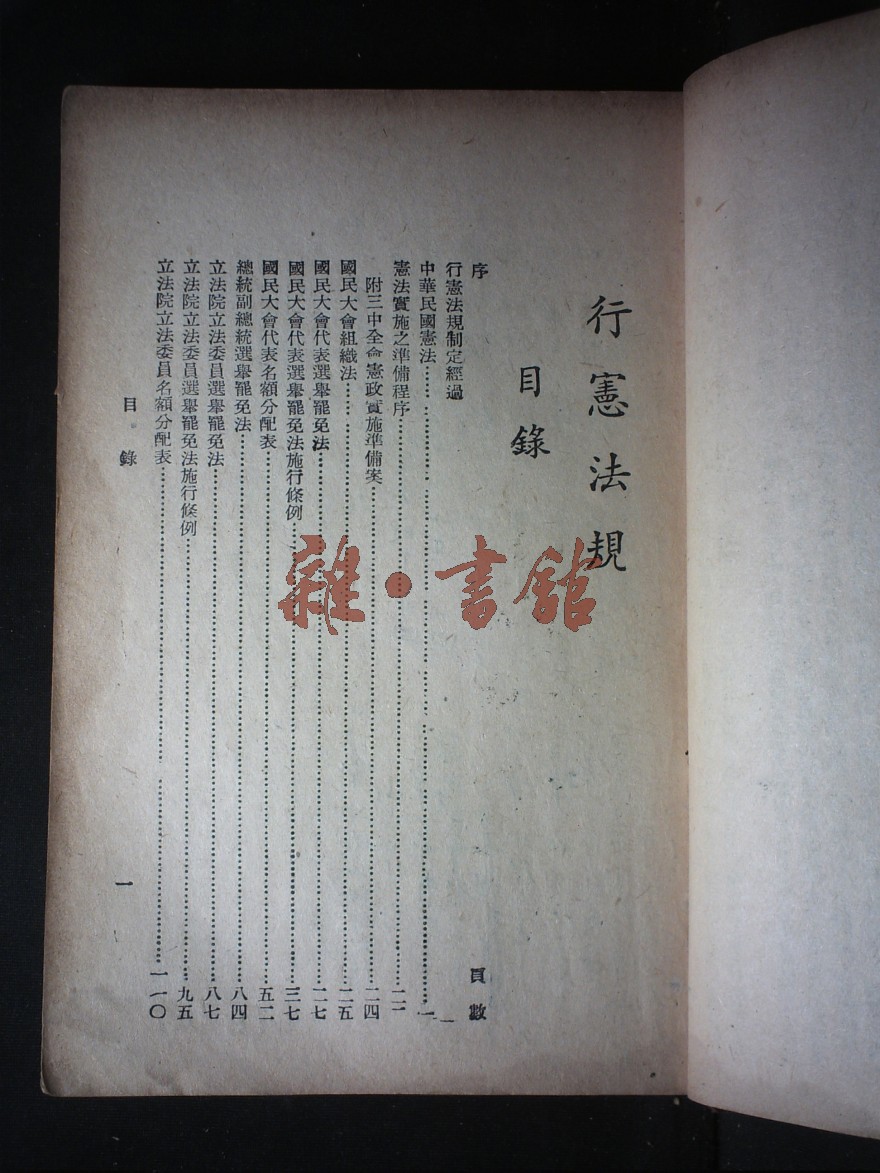 行憲法規
目錄
序 頁數
行憲法規制定經過
中華民國憲法……一
憲法實施之準備程序……二一
附三中全會憲政實施準備案……二四
國民大會組織法……二五
國民大會代表選舉罷免法……二七
國民大會代表選舉罷免法施行條例……三七
國民大會代表名額分配表……五二
總統副總統選舉罷免法……八四
立法院立法委員選舉罷免法……八七
立法院立法委員選舉罷免法施行條例……九五
立法院立法委員名額分配表……一一〇
目錄 一
雜·書館